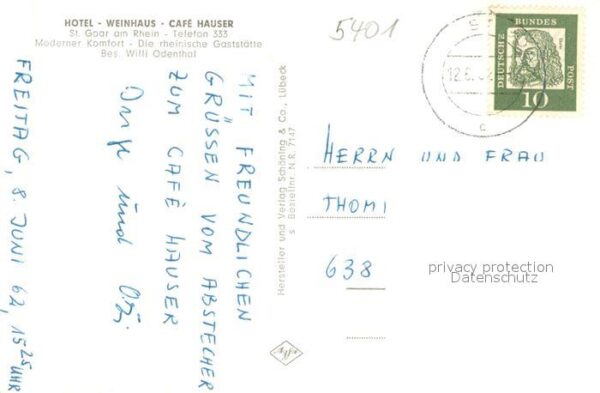 HOTEL - WEINHAUS - CAFÉ HAUSER
St. Goar am Rhein - Telefon 333
Moderner Komfort - Die rheinische Gaststätte
Bes. Willi Odenthal
5401
DEUTSCHE BUNDES POST
10
12.6.62
c
MIT FREUNDLICHEN
GRÜSSEN VOM ABSTECHER
ZUM CAFÉ HAUSER
und
FREITAG, 8. JUNI 62, 15 25 UHR
Hersteller und Verlag Schöning & Co., Lübeck
Bestellnr. N.R. 7147
Agfa
HERRN UND FRAU
THOMI
638
privacy protection
Datenschutz